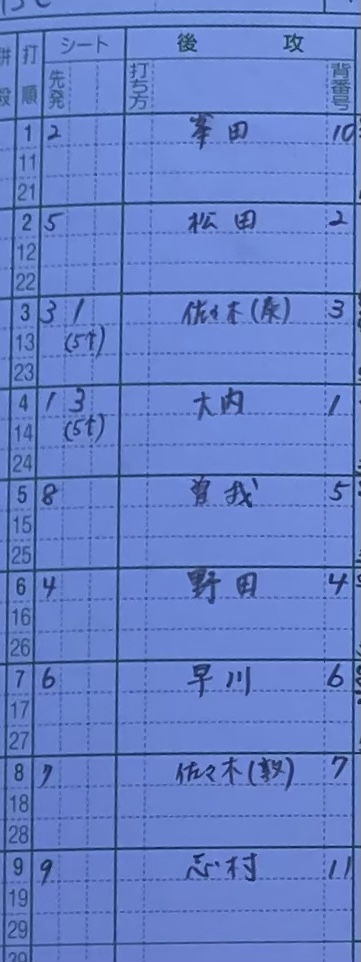 打順 シート 先発 後攻 打ち方 背番号
1 2 峯田 10
11
21
2 5 松田 2
12
22
3 3 1 佐々木(泰) 3
13 (5↑)
23
4 1 3 大内 1
14 (5↑)
24
5 8 曽我 5
15
25
6 4 野田 4
16
26
7 6 早川 6
17
27
8 7 佐々木(敦) 7
18
28
9 9 志村 11
19
29